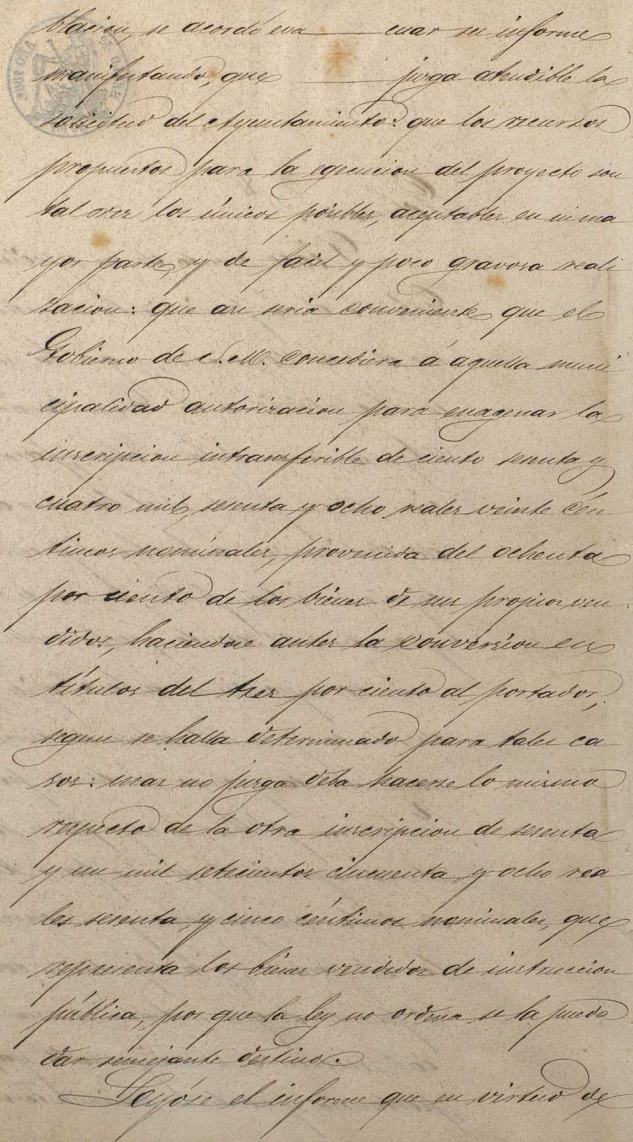 blacion, se acordó eva cuar su informe
manifestando, que juzga atendible la
solicitud del Ayuntamiento: que los recursos
propuestos para la egecucion del proyecto son
tal vez los únicos posibles, aceptables en su ma
yor parte, y de facil y poco gravosa reali
zacion: que asi seria conveniente que el
Gobierno de S. M. concediera á aquella muni
cipalidad autorizacion para enagenar la
inscripcion intransferible de ciento sesenta y
cuatro mil, sesenta y ocho reales veinte cén
timos nominales, provenida del ochenta
por ciento de los bienes de sus propios ven
didos, haciendose antes la conversion en
títulos del tres por ciento al portador,
segun se halla determinado para tales ca
sos: mas no juzga deba hacerse lo mismo
respecto de la otra inscripcion de sesenta
y un mil setecientos cincuenta y ocho rea
les sesenta y cinco céntimos nominales, que
representa los bienes vendidos de instruccion
pública, por que la ley no ordena se la pueda
dar semejante destino.
Leyóse el informe que en virtud de